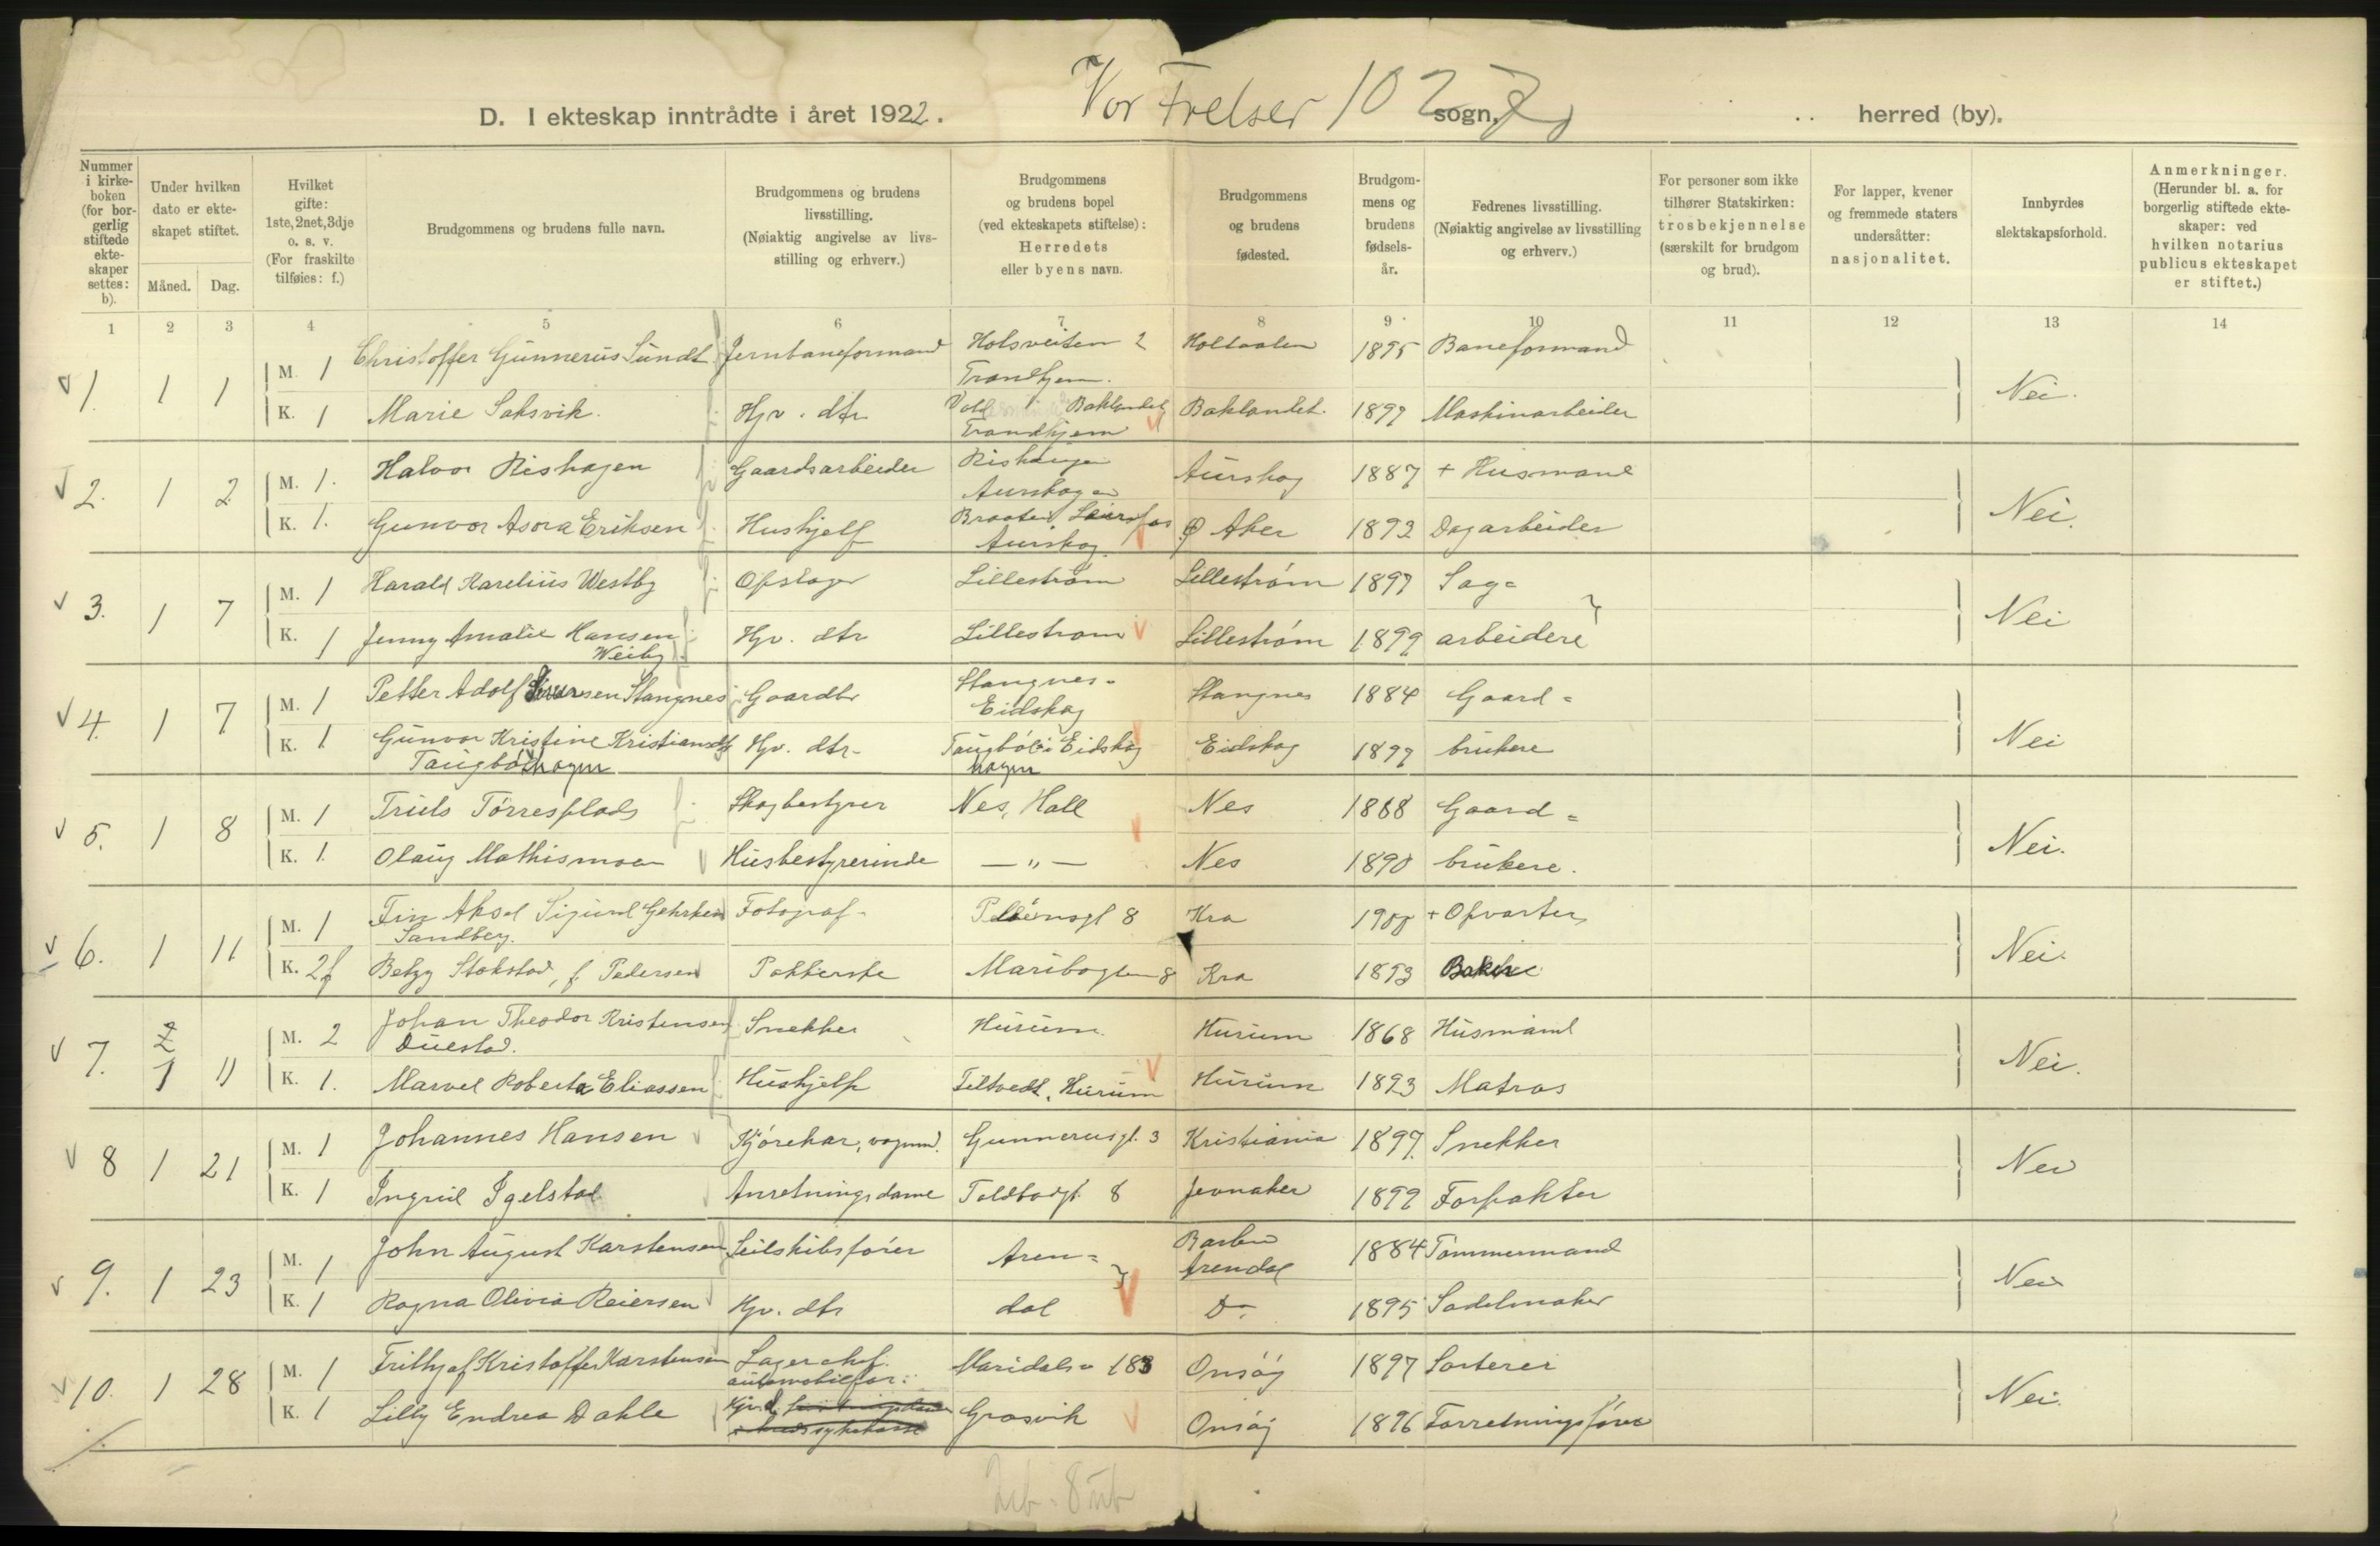 D. I ekteskap inntrådte i året 1922. Vor Frelser 102 sogn, herred (by).
Nummer i kirkeboken (for borgerlig stiftede ekteskaper settes: b).
Under hvilken dato er ekteskapet stiftet.
Måned. Dag.
Hvilket gifte: 1ste, 2net, 3dje o. s. v. (For fraskilte tilføies: f.)
Brudgommens og brudens fulle navn.
Brudgommens og brudens livsstilling. (Nøiaktig angivelse av livsstilling og erhverv.)
Brudgommens og brudens bopel (ved ekteskapets stiftelse): Herredets eller byens navn.
Brudgommens og brudens fødested.
Brudgommens og brudens fødselsår.
Fedrenes livsstilling. (Nøiaktig angivelse av livsstilling og erhverv.)
For personer som ikke tilhører Statskirken: trosbekjennelse (særskilt for brudgom og brud).
For lapper, kvener og fremmede staters undersåtter: nasjonalitet.
Innbyrdes slektskapsforhold.
Anmerkninger. (Herunder bl. a. for borgerlig stiftede ekteskaper: ved hvilken notarius publicus ekteskapet er stiftet.)
1 2 3 4 5 6 7 8 9 10 11 12 13 14
1. 1 1 M. 1 Christoffer Gunnerus Sundt Jernbaneformand Holsveiten 2 Trondhjem. Holtaalen 1895 Baneformand Nei.
K. 1 Marie Saksvik. Hjv. dtr Baklandet Trondhjem Baklandet. 1897 Maskinarbeider
2. 1 2 M. 1. Halvor Rishagen Gaardsarbeider Rishaugen Aurskog Aurskog 1887 + Husmand Nei.
K. 1. Gunvor Asora Eriksen Hushjelp Braaten, Aurskog. Ø Aker 1892 Dagarbeider
3. 1 7 M. 1 Harald Karelius Westby Opslager Lillestrøm Lillestrøm 1897 Sag= Nei
K. 1 Jenny Amalie Hansen Weiby Hjv. dtr Lillestrøm Lillestrøm 1899 arbeidere
4. 1 7 M. 1 Petter Adolf Iversen Stangnes Gaardbr Stangnes- Eidskog Stangnes 1884 Gaard= Nei
K. 1 Gunvor Kristine Kristiansdtr Taugbølhagen Hjv. dtr. Taugbøl Eidskog hagen Eidskog 1897 brukere
5. 1 8 M. 1 Truls Tørresplads Skogbestyrer Nes, Hall Nes 1868 Gaard= Nei.
K. 1. Olaug Mathismoen Husbestyrerinde — " — Nes 1890 brukere.
6. 1 11 M. 1 Fin Aksel Sigurd Gehrken Sandberg. Fotograf. 8 Kra 1900 + Opvarter Nei.
K. 2f Betzy Stokstad, f. Pedersen Pakkerske Maribogten 8 Kra 1893 Baker
7. 1 11 M. 2 Johan Theodor Kristensen Duestad. Snekker Hurum. Hurum 1868 Husmand Nei.
K. 1. Marvel Roberta Eliassen Hushjelp Tiltvedt, Hurum Hurum 1893 Matros
8 1 21 M. 1 Johannes Hansen Kjørekar, vognm. Gunnerusgt. 3 Kristiania 1897. Snekker Nei
K. 1 Ingrid Igelstad Anretningsdame Toldbodgt. 8 Jevnaker 1899 Forpakter
9. 1 23 M. 1 John August Karstensen Seilskibsfører Aren= Barbu Arendal 1884 Tømmermand Nei
K. 1 Ragna Olivia Reiersen Hjv. dtr dal Do. 1895 Sadelmaker
10. 1 28 M. 1 Frithjof Kristoffer Karstensen Lagerchef. automobilfor. Maridalsv 183 Onsøy 1897 Sorterer Nei.
K. 1 Lilly Endrea Dahle Hjv.d. Grosvik Onsøy 1896 Forretningsfører